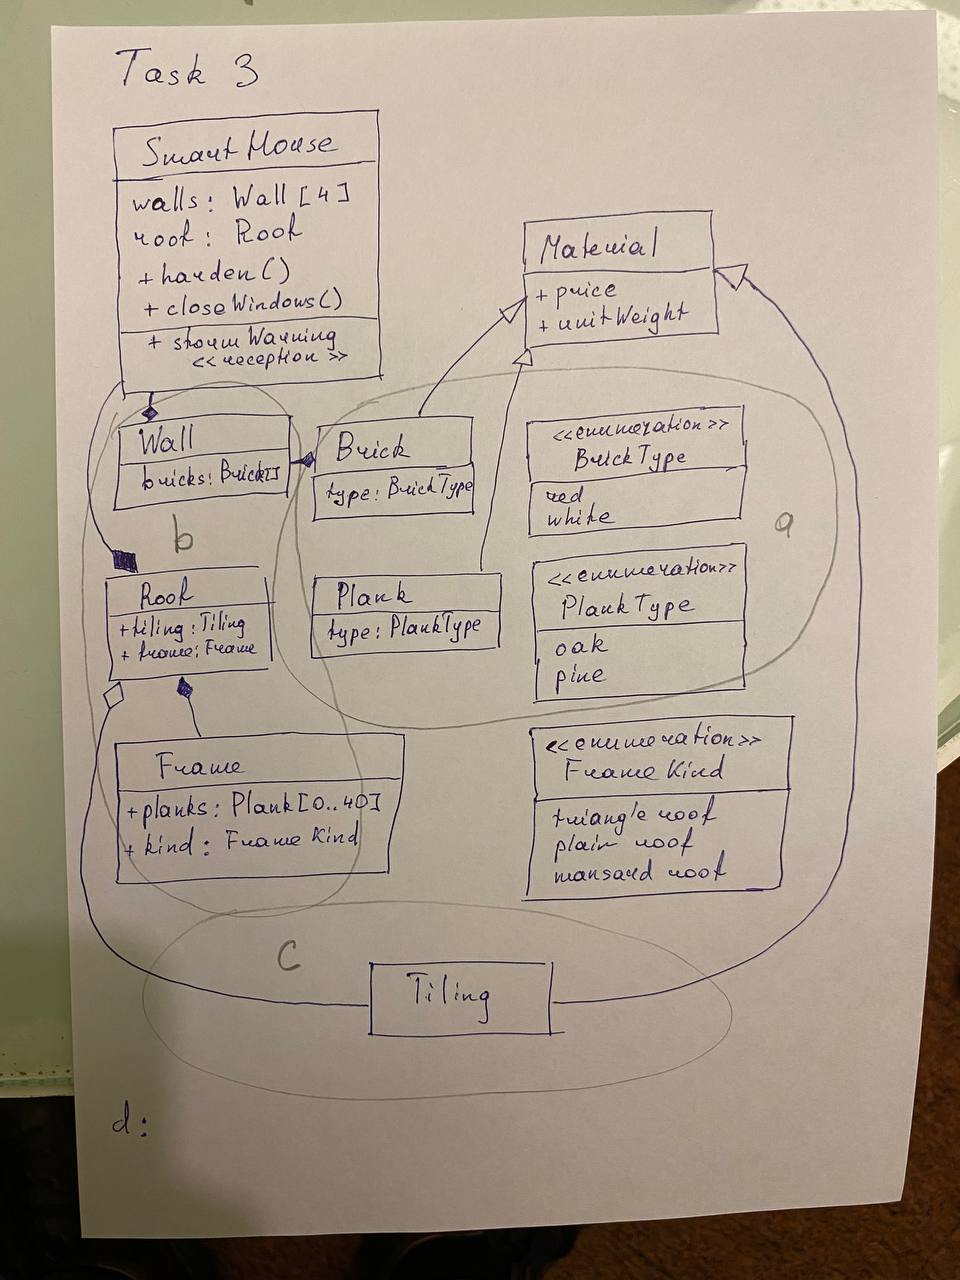 Task 3
Smart House
walls: Wall [4]
roof: Roof
+ harden()
+ closeWindows()
+ stormWarning
<<reception>>
Material
+ price
+ unitWeight
Wall
bricks: Brick[]
b
Brick
type: BrickType
<<enumeration>>
BrickType
red
white
a
Roof
+tiling: Tiling
+ frame: Frame
Plank
type: PlankType
<<enumeration>>
PlankType
oak
pine
Frame
+planks: Plank[0..40]
+ kind: Frame Kind
<<enumeration>>
Frame Kind
triangle roof
plain roof
mansard roof
c
Tiling
d: